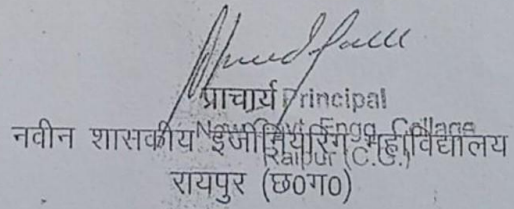 प्राचार्य Principal
नवीन शासकीय इंजीनियरिंग महाविद्यालय
New Govt. Engg. College
Raipur (C.G.)
रायपुर (छ0ग0)